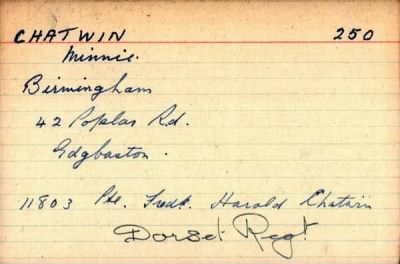 CHATWIN 250
Minnie.
Birmingham
42 Poplar Rd.
Edgbaston.
11803 Pte. Fredk. Harold Chatwin
Dorset Regt